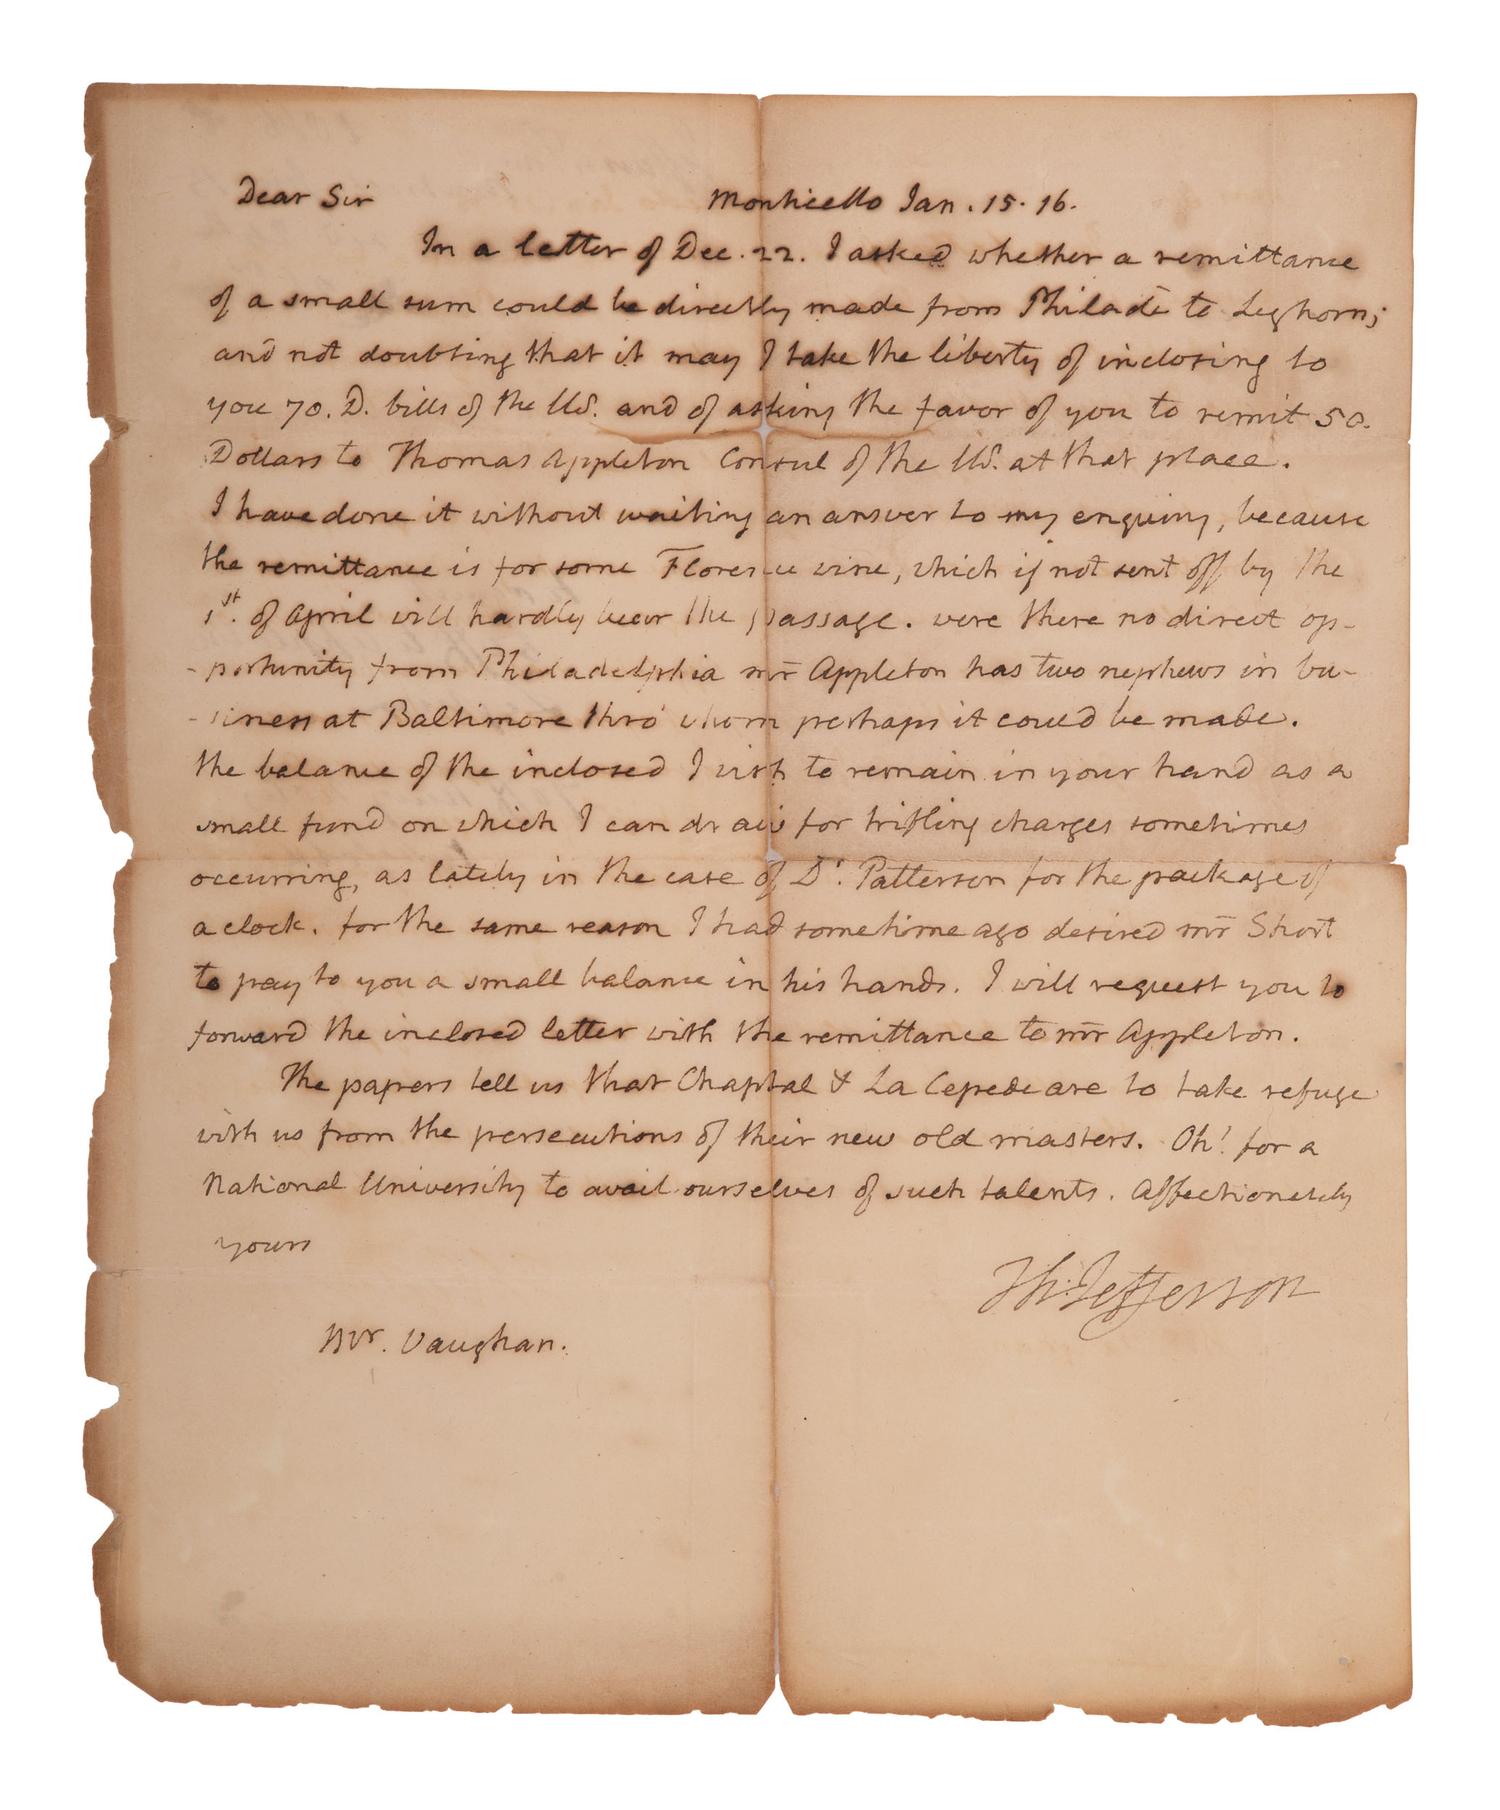 Dear Sir Monticello Jan. 15. 16.
In a letter of Dec. 22. I asked whether a remittance
of a small sum could be directly made from Philade to Leghorn;
and not doubting that it may I take the liberty of inclosing to
you 70. D. bills of the US. and of asking the favor of you to remit 50.
Dollars to Thomas Appleton Consul of the US. at that place.
I have done it without waiting an answer to my enquiry, because
the remittance is for some Florence wine, which if not sent off by the
1st. of April will hardly bear the passage. were there no direct op-
-portunity from Philadelphia mr Appleton has two nephews in bu-
-siness at Baltimore thro' whom perhaps it could be made.
the balance of the inclosed I wish to remain in your hand as a
small fund on which I can draw for trifling charges sometimes
occurring, as lately in the case of Dr. Patterson for the package of
a clock. for the same reason I had sometime ago desired mr Short
to pay to you a small balance in his hands. I will request you to
forward the inclosed letter with the remittance to mr Appleton.
The papers tell us that Chaptal & La Cepede are to take refuge
with us from the persecutions of their new old masters. Oh! for a
National University to avail ourselves of such talents. Affectionately
yours
Th: Jefferson
Mr. Vaughan.